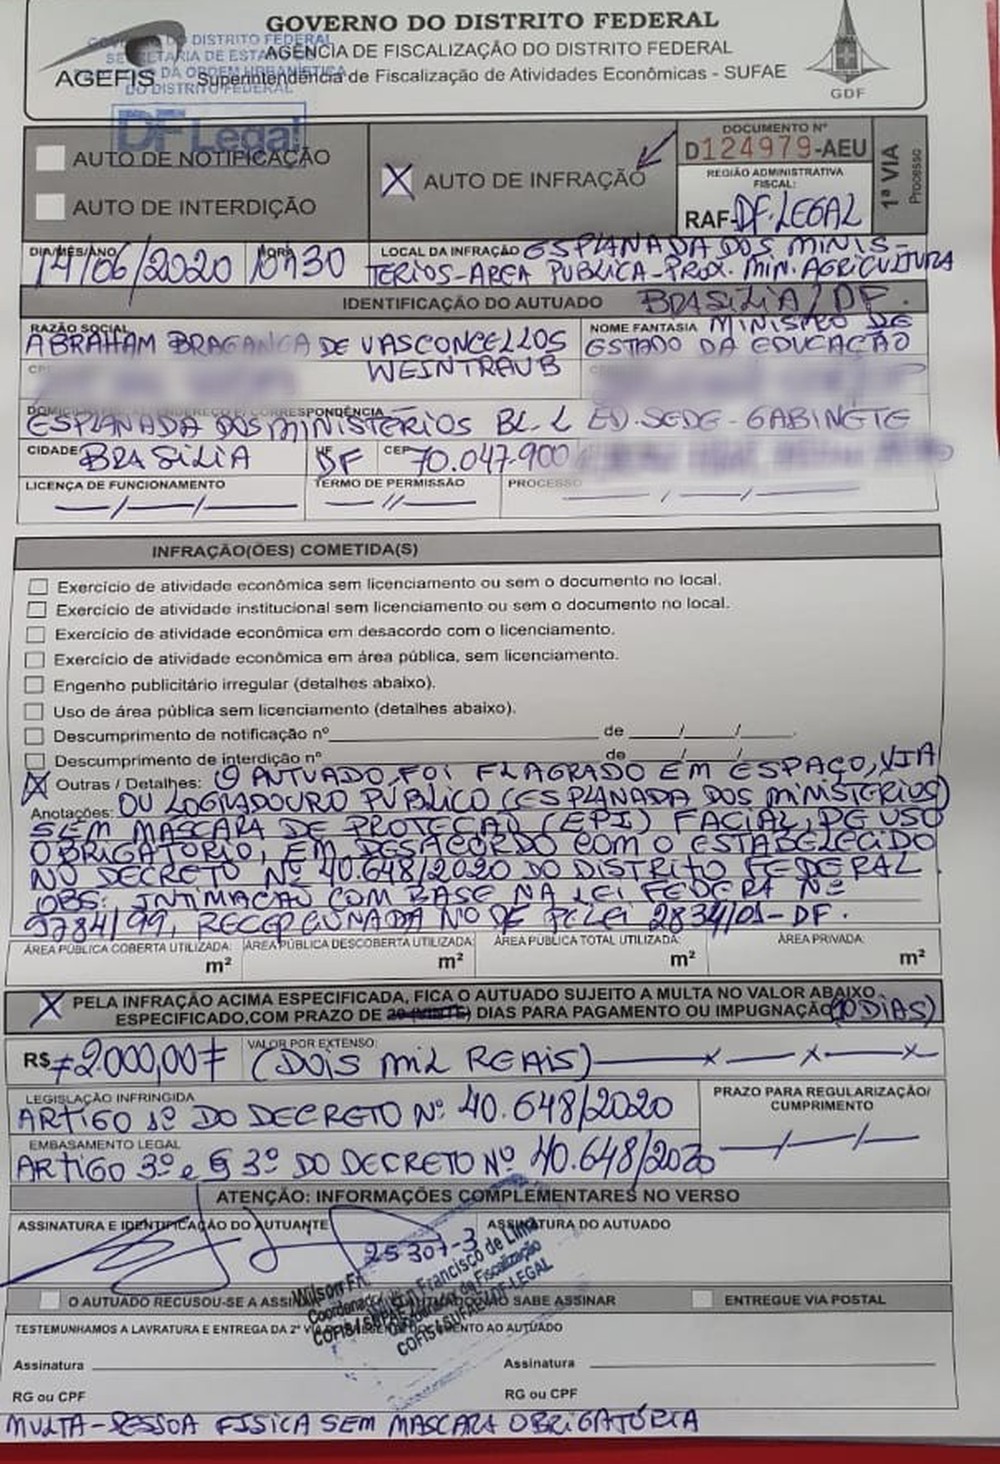 GOVERNO DO DISTRITO FEDERAL
AGÊNCIA DE FISCALIZAÇÃO DO DISTRITO FEDERAL
Superintendência de Fiscalização de Atividades Econômicas - SUFAE
AGEFIS
GDF
GOVERNO DO DISTRITO FEDERAL
SECRETARIA DE ESTADO
DA ORDEM URBANÍSTICA
DO DISTRITO FEDERAL
DF Legal
AUTO DE NOTIFICAÇÃO
AUTO DE INTERDIÇÃO
X AUTO DE INFRAÇÃO
DOCUMENTO Nº
D124979-AEU
REGIÃO ADMINISTRATIVA
FISCAL:
RAF-DF-LEGAL
1ª VIA
Processo
DIA/MÊS/ANO 14/06/2020 HORA 10h30 LOCAL DA INFRAÇÃO ESPLANADA DOS MINIS-
TÉRIOS-AREA PUBLICA-PROX. MIN. AGRICULTURA
BRASILIA/DF.
IDENTIFICAÇÃO DO AUTUADO
RAZÃO SOCIAL ABRAHAM BRAGANCA DE VASCONCELLOS
WEINTRAUB
NOME FANTASIA MINISTRO DE
ESTADO DA EDUCAÇÃO
ESPLANADA DOS MINISTÉRIOS BL. L ED. SEDE - GABINETE
CIDADE BRASILIA UF DF CEP 70.047-900
LICENÇA DE FUNCIONAMENTO TERMO DE PERMISSÃO PROCESSO
INFRAÇÃO(ÕES) COMETIDA(S)
Exercício de atividade econômica sem licenciamento ou sem o documento no local.
Exercício de atividade institucional sem licenciamento ou sem o documento no local.
Exercício de atividade econômica em desacordo com o licenciamento.
Exercício de atividade econômica em área pública, sem licenciamento.
Engenho publicitário irregular (detalhes abaixo).
Uso de área pública sem licenciamento (detalhes abaixo).
Descumprimento de notificação nº de / /
Descumprimento de interdição nº de / /
X Outras / Detalhes: O AUTUADO, FOI FLAGRADO EM ESPAÇO, VIA
Anotações: OU LOGRADOURO PÚBLICO (ESPLANADA DOS MINSTERIOS)
SEM MÁSCARA DE PROTEÇÃO (EPI) FACIAL, DE USO
OBRIGATÓRIO, EM DESACORDO COM O ESTABELECIDO
NO DECRETO Nº 40.648/2020 DO DISTRITO FEDERAL
OBS: INTIMAÇÃO COM BASE NA LEI FEDERA Nº
9784/99, RECEPCIONADA NO DF PELEI 2834/01-DF.
ÁREA PÚBLICA COBERTA UTILIZADA: m² ÁREA PÚBLICA DESCOBERTA UTILIZADA: m² ÁREA PÚBLICA TOTAL UTILIZADA: m² ÁREA PRIVADA: m²
X PELA INFRAÇÃO ACIMA ESPECIFICADA, FICA O AUTUADO SUJEITO A MULTA NO VALOR ABAIXO
ESPECIFICADO, COM PRAZO DE 20 (VINTE) DIAS PARA PAGAMENTO OU IMPUGNAÇÃO (10 DIAS)
R$ 2.000,00 VALOR POR EXTENSO: (DOIS MIL REAIS)
LEGISLAÇÃO INFRINGIDA
ARTIGO 1º DO DECRETO Nº 40.648/2020
PRAZO PARA REGULARIZAÇÃO/
CUMPRIMENTO
EMBASAMENTO LEGAL
ARTIGO 3º e § 3º DO DECRETO Nº 40.648/2020
ATENÇÃO: INFORMAÇÕES COMPLEMENTARES NO VERSO
ASSINATURA E IDENTIFICAÇÃO DO AUTUANTE ASSINATURA DO AUTUADO
25307-3
Francisco de Lima
de Fiscalização
COFIS/SUFAE/DF-LEGAL
O AUTUADO RECUSOU-SE A ASSINAR SABE ASSINAR ENTREGUE VIA POSTAL
TESTEMUNHAMOS A LAVRATURA E ENTREGA DA 2ª AO AUTUADO
Assinatura Assinatura
RG ou CPF RG ou CPF
MULTA-PESSOA FISICA SEM MASCARA OBRIGATÓRIA